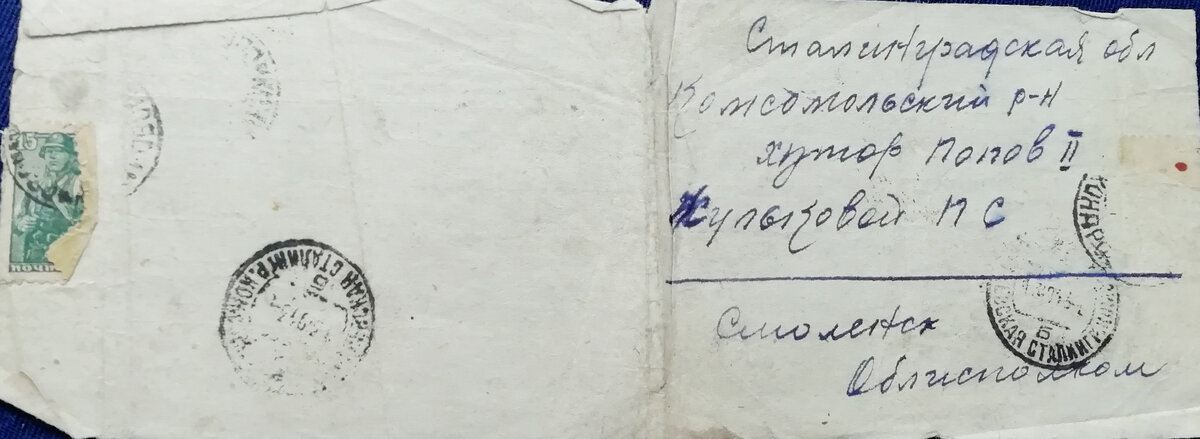 Сталинградская обл
Комсомольский р-н
хутор Попов II
Жульковой П С
Смоленск
Облисполком
СКАЯ СТАЛИНГР.
СКАЯ СТАЛИНГР.
15